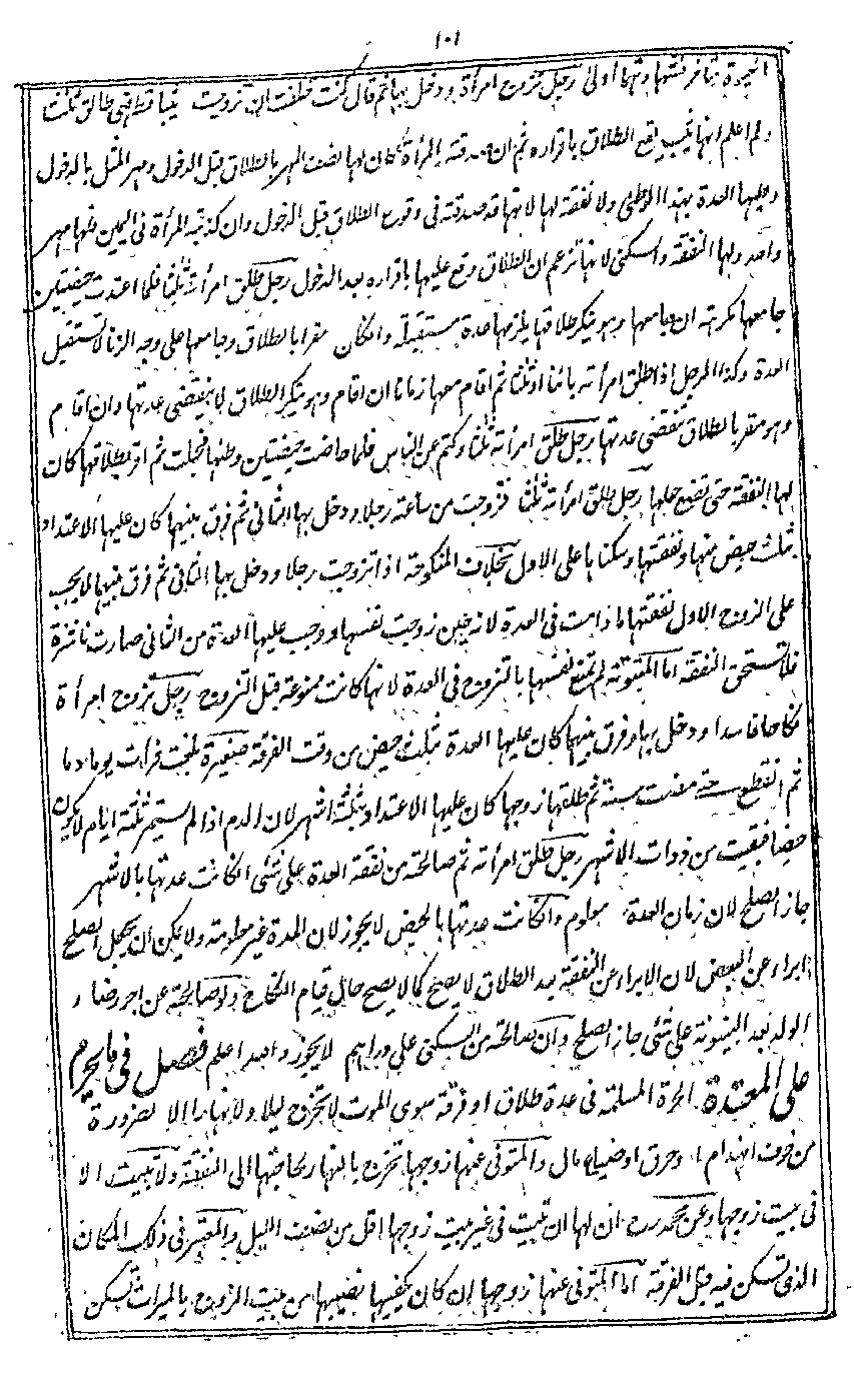 ١٠١
رجل تزوج امرأة ودخل بها ثم قال كنت حلفت ان تزوجت ثيبا قط فهى طالق ثلثا
ولم اعلم انها ثيب يقع الطلاق باقراره ثم ان صدقته المرأة كان لها نصف المهر بالطلاق قبل الدخول ومهر المثل بالدخول
وعليها العدة بهذا الوطئ ولا نفقة لها لانها قد صدقته فى وقوع الطلاق قبل الدخول وان كذبته المرأة فى اليمين فلها مهر
واحد ولها النفقة والسكنى لانها تزعم ان الطلاق وقع عليها باقراره بعد الدخول رجل طلق امرأته ثلثا فلما اعتدت حيضتين
جامعها مكرهة ان جامعها وهو ينكر طلاقها يلزمها عدة مستقبلة وانكان مقرا بالطلاق وجامعها على وجه الزنا لا تستقبل
العدة وكذا الرجل اذا طلق امرأته بائنا او ثلثا ثم اقام معها زمانا ان اقام وهو ينكر الطلاق لا تنقضى عدتها وان اقام
وهو مقر بالطلاق تنقضى عدتها رجل طلق امرأته ثلثا وكتم عن الناس فلما حاضت حيضتين وطئها فحبلت ثم اقر بطلاقها كان
لها النفقة حتى تضع حملها رجل طلق امرأته ثلثا فتزوجت من ساعته رجلا ودخل بها الثانى ثم فرق بينهما كان عليها الاعتداد
بثلث حيض منها ونفقتها وسكناها على الاول بخلاف المنكوحة اذا تزوجت رجلا ودخل بها الثانى ثم فرق بينهما لا يجب
على الزوج الاول نفقتها ما دامت فى العدة لانه حين زوجت نفسها ووجب عليها العدة من الثانى صارت ناشزة
فلا تستحق النفقة اما المبتوتة لم تمنع نفسها بالتزوج فى العدة لانها كانت ممنوعة قبل التزوج رجل تزوج امرأة
نكاحا فاسدا ودخل بها وفرق بينهما كان عليها العدة بثلث حيض من وقت الفرقة صغيرة بلغت فرأت يوما دما
ثم انقطع حتى مضت سنة ثم طلقها زوجها كان عليها الاعتداد بثلثة اشهر لان الدم اذا لم يستمر ثلثة ايام لا يكون
حيضا فبقيت من ذوات الاشهر رجل طلق امرأته ثم صالحته من نفقة العدة على شئى انكانت عدتها بالاشهر
جاز الصلح لان زمان العدة معلوم وانكانت عدتها بالحيض لا يجوز لان المدة غير معلومة ولا يمكن ان يجعل الصلح
ابراء عن البعض لان الابراء عن النفقة بعد الطلاق لا يصح كما لا يصح حال قيام النكاح ولو صالحته عن اجر رضاع
الولد بعد البينونة على شئى جاز الصلح وان صالحته من السكنى على دراهم لا يجوز والله اعلم فصل فى ما يحرم
على المعتدة الحرة المسلمة فى عدة طلاق او فرقة سوى الموت لا تخرج ليلا ولا نهارا الا لضرورة
من خوف انهدام او حرق او ضياع مال والمتوفى عنها زوجها تخرج بالنهار لحاجتها الى النفقة ولا تبيت الا
فى بيت زوجها وعن محمد رح ان لها ان تبيت فى غير بيت زوجها اقل من نصف الليل والمعتبر فى ذلك المكان
الذى تسكن فيه قبل الفرقة اما المتوفى عنها زوجها ان كان يكفيها نصيبها من بيت الزوج بالميراث تسكن